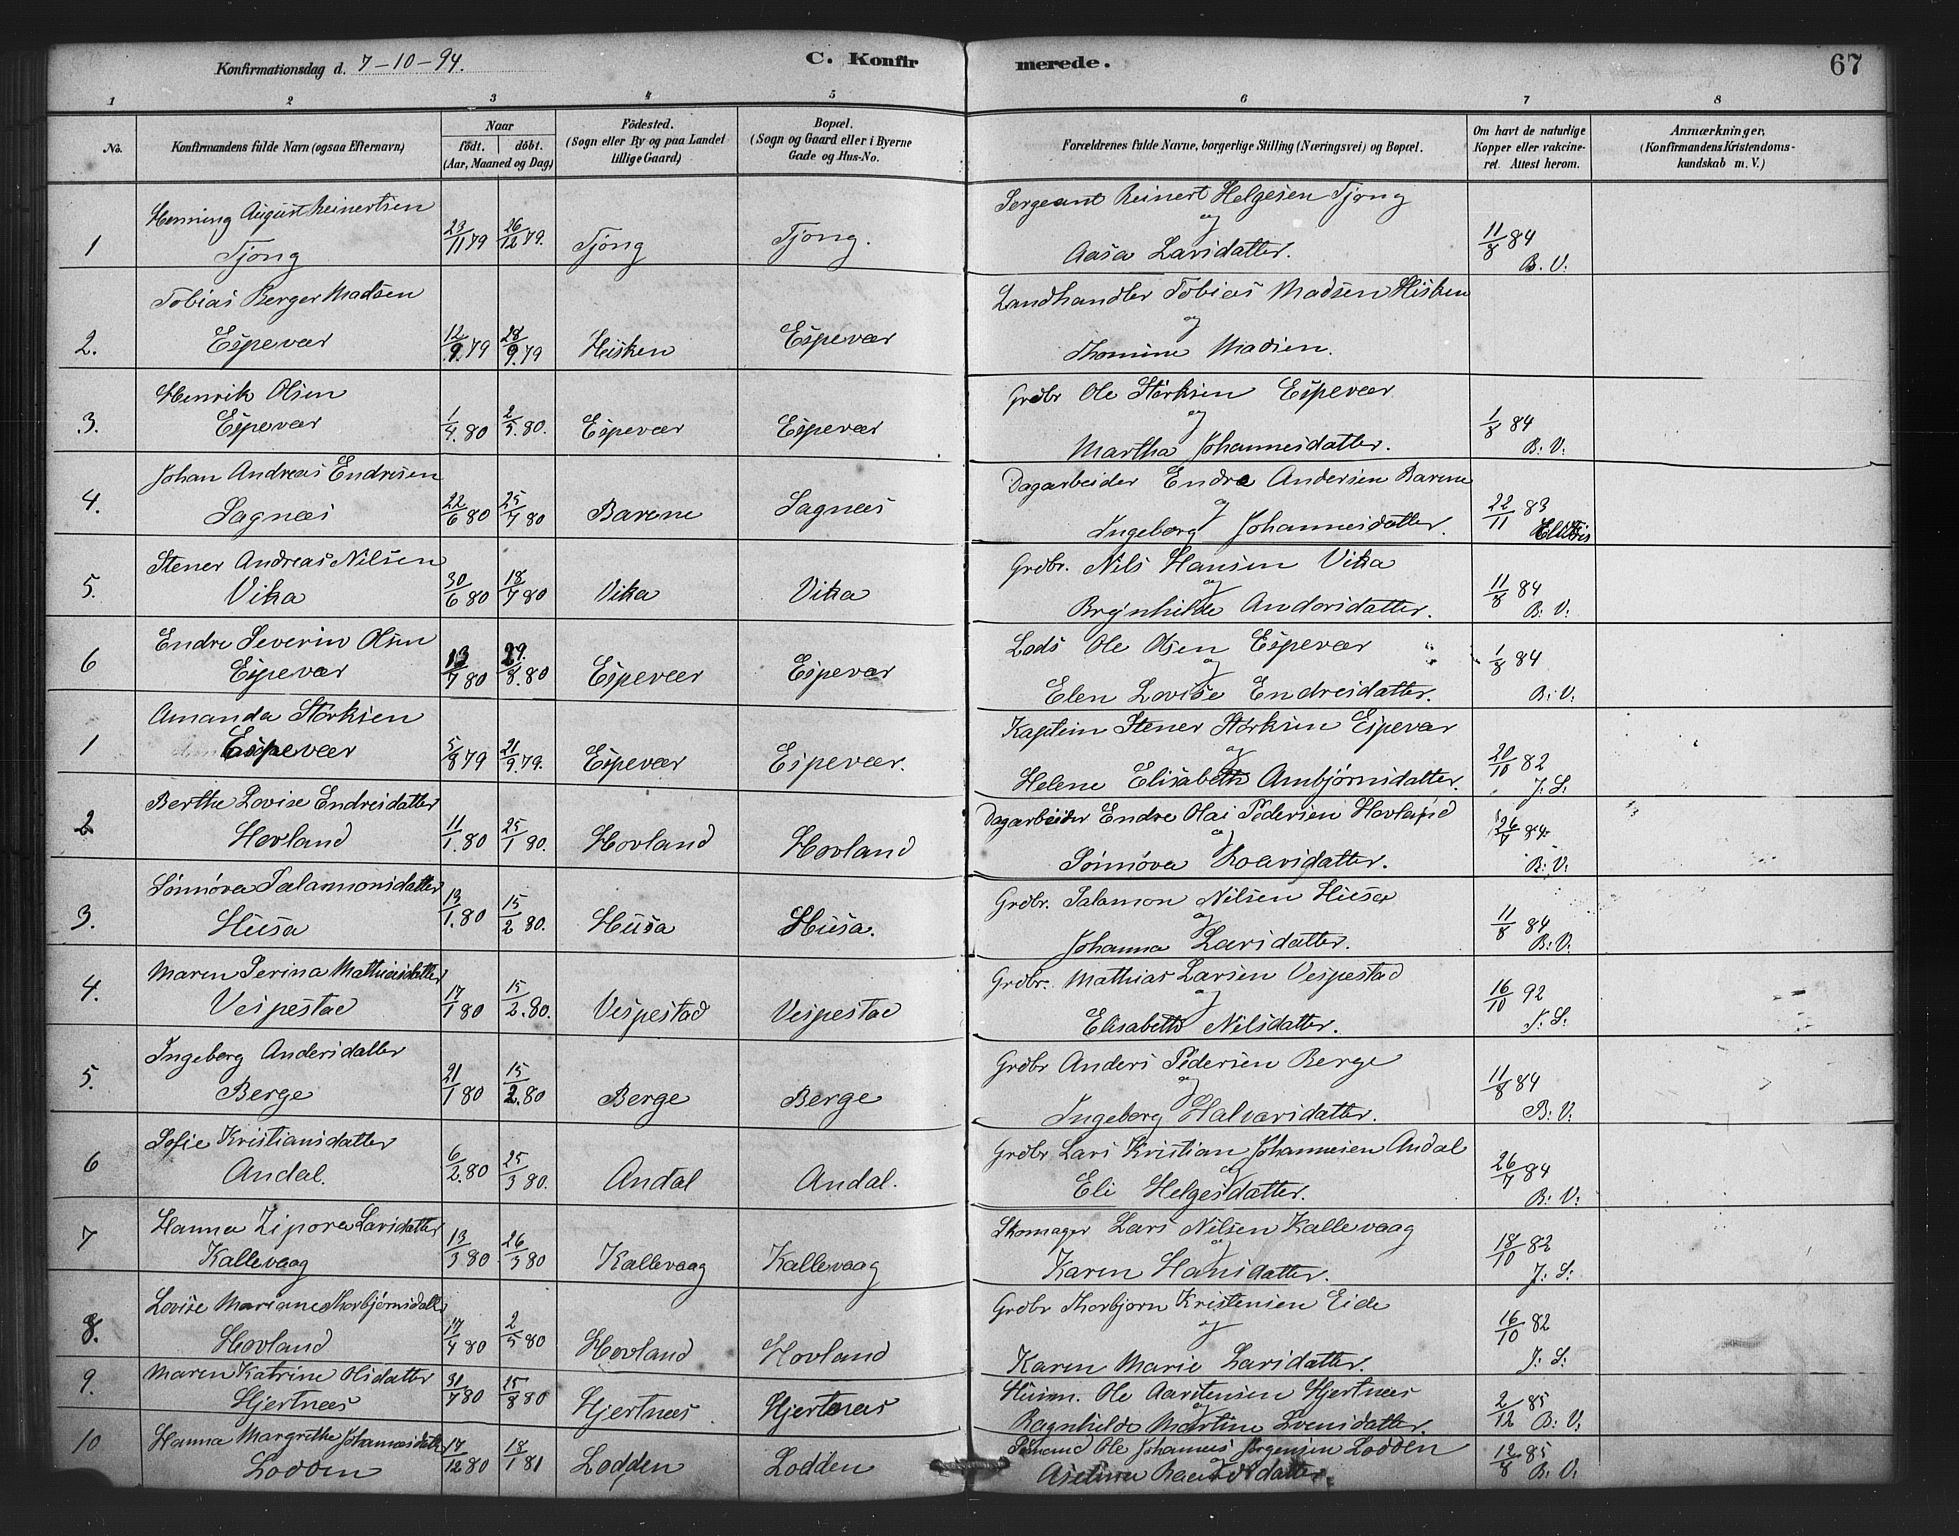 Konfirmationsdag d. 7-10-94. C. Konfirmerede. 67
1 2 3 4 5 6 7 8
No. Konfirmandens fulde Navn (ogsaa Efternavn) Naar födt. döbt. (Aar, Maaned og Dag) Födested. (Sogn eller By og paa Landet tillige Gaard) Bopæl. (Sogn og Gaard eller i Byerne Gade og Hus-No. Forældrenes fulde Navne, borgerlige Stilling (Næringsvei) og Bopæl. Om havt de naturlige Kopper eller vakcineret. Attest herom. Anmærkninger, (Konfirmandens Kristendomskundskab m. V.)
Henning August Reinertsen Sergeant Reinert Helgesen Tjong
1 Tjong 23/11 79 26/12 79. Tjong Tjong. og Aasa Larsdatter. 11/8 84 B. V.
Tobias Berger Madsen Landhandler Tobias Madsen Hisken
2. Espevær 12/9. 79 28/9. 79 Hisken Espevær og Thomine Madsen.
Henrik Olsen Grdbr Ole Störksen Espevær
3. Espevær 1/4. 80 2/5. 80. Espevær Espevær og Martha Johannesdatter. 1/8 84 B: V.
Johan Andreas Endresen Dagarbeider Endre Andersen Barene
4. Sagnæs 22/6 80 25/7 80 Barene Sagnæs og Ingeborg Johannesdatter. 22/11 83
Stener Andreas Nilsen Grdbr. Nils Hansen Vika
5. Vika 30/6 80 18/7 80 Vika Vika og Brynhilde Andersdatter. 11/8 84 B: V:
Endre Severin Olsen Lods Ole Olsen Espevær
6 Espevær 13/7 80 29./8. 80 Espevær Espevær og Elen Lovise Endresdatter. 1/8 84 B: V:
Amanda Störksen Kaptein Stener Störksen Espevær
1 Espevær 5/8 79 21/9. 79. Espevær Espevær. og Helene Elisabeth Ambjörnsdatter. 20/10 82 J: S:
Berthe Lovise Endresdatter Dagarbeider Endre Olai Pedersen Hovland
2 Hovland 11/1. 80 25/1 80. Hovland Hovland og Sönnöva Roarsdatter. 26/7 84 B: V:
Sönnöva Salamonsdatter Grdbr. Salamon Nilsen Husa
3. Husa 13/1. 80 15/2 80. Husa Husa. og Johanna Larsdatter. 11/8 84 B: V:
Maren Serina Mathiasdatter Grdbr. Mathias Larsen Vespestad
4. Vespestad 17/1 80 15/2. 80. Vespestad Vespestad og Elisabeth Nilsdatter. 16/10 92 J: S:
Ingeborg Andersdatter Grdbr Anders Pedersen Berge
5. Berge 21/1 80 15/2. 80 Berge Berge og Ingeborg Halvarsdatter. 11/8 84 B: V:
Sofie Kristiansdatter Grdbr Lars Kristian Johannesen Andal
6 Andal. 6/2. 80 25/3 80. Andal Andal. og Eli Helgesdatter. 26/7 84 B: V:
Hanna Zipora Larsdatter Skomager Lars Nilsen Kallevaag
7 Kallevaag 13/3 80 26/3 80 Kallevaag Kallevaag og Karen Hansdatter. 18/10 82 J: S:
Lovise Mariane Thorbjörnsdatter Grdbr Thorbjorn Kristensen Eide
8. Hovland 17/4 80 2/5 80 Hovland Hovland og Karen Marie Larsdatter. 16/10 82 J: S:
Maren Katrine Olsdatter Husm. Ole Aarstensen Hjertnæs
9. Hjertnæs 31/7 80 15/8 80 Hjertnæs Hjertnæs og Ragnhilde Martine Svensdatter. 2/12 85 B: V:
Hanna Margrethe Johannesdatter Ole Johannes Jörgensen Lodden
10 Lodden 17/12 80 18/1 81 Lodden Lodden 12/8 85 B: V: